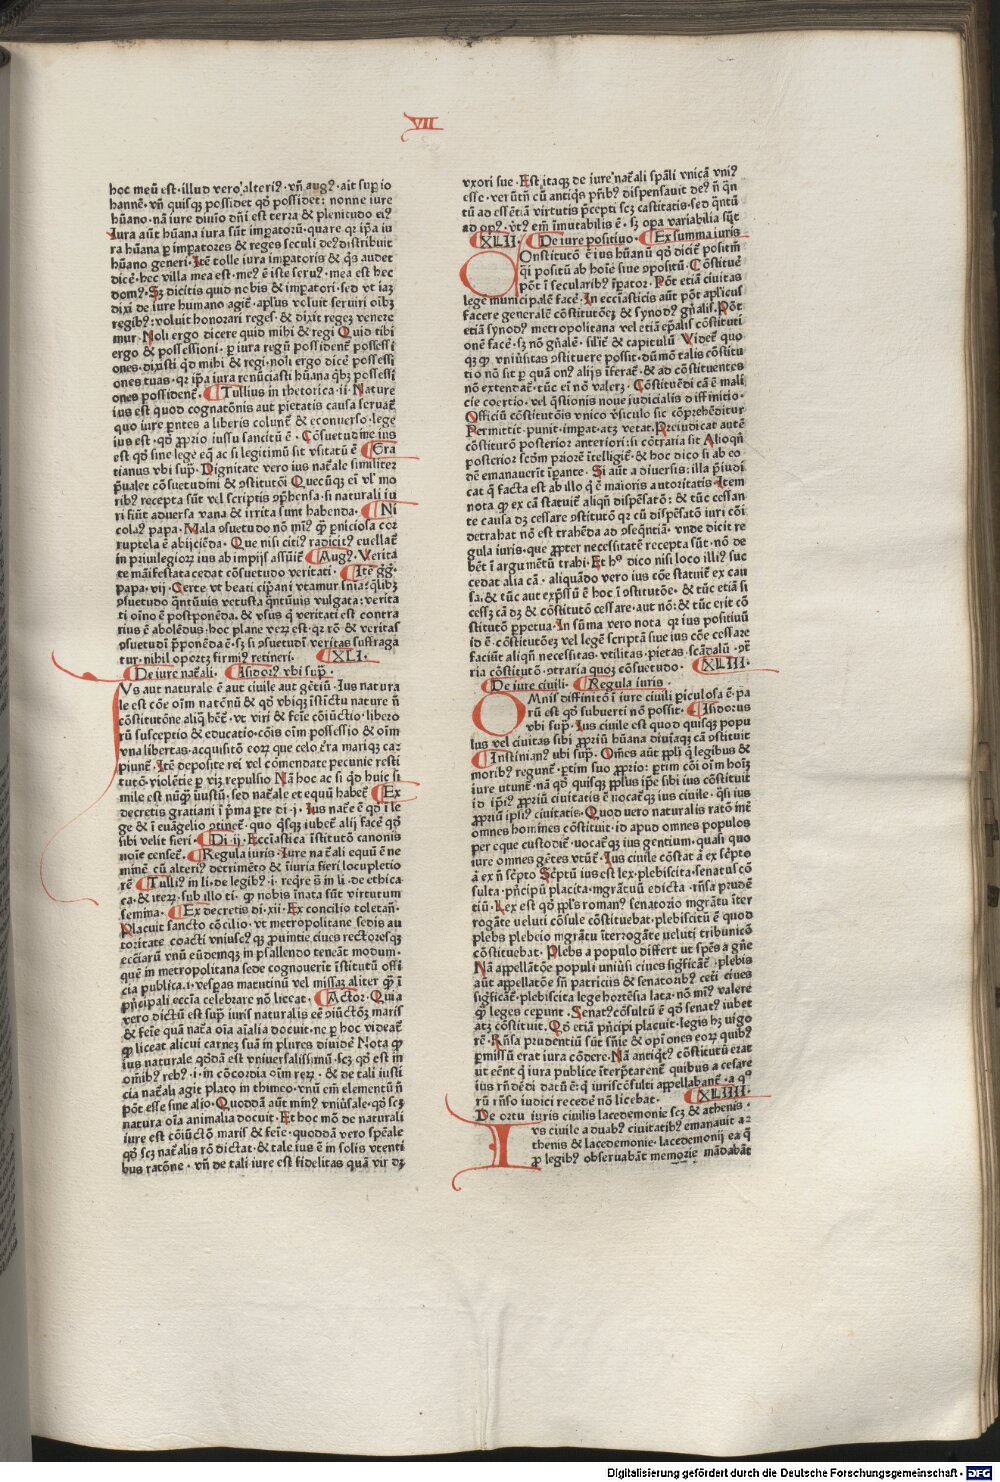 VII
hoc meū est·illud vero alteriꝰ·vñ augꝰ·ait suꝑ io
hannē·vñ quisqꝫ possidet qđ possidet: nonne iure
hūano·nā iure diuīo dñi est terra & plenitudo eiꝰ
Iura aūt hūana iura sūt imꝑatorū·quare qꝛ ip̄a iu
ra hūana ꝑ imꝑatores & reges seculi deꝰ distribuit
hūano generi·Itē tolle iura imꝑatoris & q̄s audet
dicē·hec villa mea est·meꝰ ē iste seruꝰ·mea est hec
domꝰ·Sꝫ dicitis quid nobis & imꝑatori·sed vt iaꝫ
dixi de iure humano agit̄·ap̄lus voluit seruiri oībꝫ
regibꝰ:voluit honorari reges·& dixit regeꝫ venere
mur·Noli ergo dicere quid mihi & regi Quid tibi
ergo & possessioni·ꝑ iura regū possident̄ possessi
ones·dixisti qđ mihi & regi·noli ergo dicē possessi
ones tuas·qꝛ ip̄a iura renūciasti hūana q̄bꝫ possessi
ones possident̄· Tullius in rhetorica·ii·Nature
ius est quod cognatōnis aut pietatis causa seruat̄
quo iure ꝑntes a liberis colunt̄ & econuerso·lege
ius est·qđ ꝓprio iussu sancitū ē·Cōsuetudine ius
est qđ sine lege eq̄ ac si legitimū sit vsitatū ē Gra
tianus vbi supͣ·Dignitate vero ius nat̄ale similiter
p̄ualet cōsuetudini & ꝯstitutōi Quecūqꝫ eī vꝉ mo
ribꝰ recepta sūt vel scriptis ꝯp̄hensa·si naturali iu
ri fiūt aduersa vana & irrita sunt habenda· Ni
colaꝰ papa·Mala ꝯsuetudo nō minꝰ q̄ꝫ ꝑniciosa cor
ruptela ē abijciēda·Que nisi citiꝰ radicitꝰ euellat̄
in priuilegioꝝ ius ab impijs assūit̄ Augꝰ·Verita
te māifestata cedat cōsuetudo veritati· Itē gg̃·
papa·vij·Certe vt beati cip̄ani vtamur sñia:q̄libꝫ
ꝯsuetudo q̄ntūuis vetusta q̄ntūuis vulgata:verita
ti oīno ē postponēda·& vsus qͥ veritati est contra
rius ē abolēdus·hoc plane veꝝ est·qꝛ rō & veritas
ꝯsuetudī p̄ponēda ē·sꝫ si ꝯsuetudī veritas suffraga
tur·nihil oportꝫ firmiꝰ retineri· XLI·
De iure nat̄ali· Isidorꝰ vbi supͣ·
Vs aut naturale ē aut ciuile aut gētiū·Ius natura
le est cōe oīm natōnū & qđ vbiqꝫ istīctu nature ñ
cōstitutōne aliqͣ hēt̄·vt viri & feīe cōiūctio·libero
rū susceptio & educatio·cōis oīm possessio & oīm
vna libertas·acquisitō eoꝝ que celo t̄ra mariqꝫ ca
piunt̄·Itē deposite rei vel comendate pecunie resti
tutō·violētie ꝑ viꝫ repulsio Nā hoc ac si qđ huic si
mile est nūq̄ꝫ iīustū·sed nat̄ale et equū habet̄ Ex
decretis gratiani ī p̄ma ꝑte di·j·Ius nat̄e ē qđ ī le
ge & ī euāgelio ꝯtinet̄·quo q̄sqꝫ iubet̄ alij facē qđ
sibi velit fieri· Di·ij·Ecc̄iastica īstitutō canonis
noīe censet̄· Regula iuris·Iure nat̄ali equū ē ne
minē cū alteriꝰ detrimēto & īiuria fieri locupletio
rē Tulliꝰ in li·de legibꝰ·i·reqͥre s̄ in li·de ethica
ca·& iteꝝ·sub illo ti·q̄ꝫ nobis īnata sūt virtutum
semina· Ex decretis di·xii·Ex concilio toletañ·
Placuit sancto cōcilio·vt metropolitane sedis au
toritate coacti vniuscꝰqꝫ ꝓuintie ciues rectoresqꝫ
ecc̄iarū vnū eūdemqꝫ in psallendo teneāt modum·
quē in metropolitana sede cognouerīt īstitutū offi
cia publica·i·vesꝑas matutinū vel missaꝫ aliter q̄ꝫ ī
p̄ncipali ecc̄ia celebrare nō liceat· Actor·Quia
vero dictū est supͣ iuris naturalis eē ꝯiūctōꝫ maris
& feīe quā nat̄a oīa aīalia docuit·ne ꝑ hoc videat̄
qđ liceat alicui carneꝫ suā in plures diuidē Nota qđ
ius naturale qđdā est vniuersalissimū·scꝫ qđ est in
oībꝰ rebꝰ·i·in cōcordia oīm reꝝ·& de tali iusti
cia nat̄ali agit plato in thimeo·vnū em̄ elementū ñ
pōt esse sine alio·Quoddā aūt minꝰ vniūsale·qđ scꝫ
natura oīa animalia docuit·Et hoc mō de naturali
iure est cōiūctō maris & feīe·quoddā vero sp̄eāle
qđ scꝫ nat̄alis rō dictat·& tale ius ē in solis vtenti
bus ratōne·vñ de tali iure est fidelitas quā vir dꝫ
vxori sue·Est itaqꝫ de iure nat̄ali sp̄ali vnicā vniꝰ
esse·verūtñ cū antiqͥs pr̄ibꝰ dispensauit deꝰ ñ q̄n
tū ad essētiā virtutis p̄cepti scꝫ castitatis·sed q̄ntū
ad opꝰ·vtꝰ em̄ īmutabilis ē·sꝫ opa variabilia sūt
XLII· De iure positiuo· Ex summa iuris
Onstitutō ē ius hūanū qđ dicit̄ positm̄
qͥi positū ab hoīe siue ꝯpositū·Cōstitue
pōt ī secularibꝰ īꝑator·Pōt etiā ciuitas
legē municipalē facē·In ecc̄iasticis aūt pōt apl̄icus
facere generalē cōstitutōeꝫ & synodꝰ gñalis·Pōt
etiā synodꝰ metropolitana vel etiā ep̄alis cōstituti
onē facē·sꝫ nō gñalē·silr̄ & capitulū Videt̄ quo
qꝫ qđ vniūsitas ꝯstituere possit·dūmō talis cōstitu
tio nō sit ꝑ quā onꝰ alijs īferat̄·& ad cōstituentes
nō extendat̄·tūc eī nō valeꝫ·Cōstituēdi cā ē mali
cie coertio·vel q̄stionis noue iudicialis diffinitio·
Officiū cōstitutōis vnico v̄siculo sic cōprehēditur
Permittit·punit·imꝑat·atqꝫ vetat·Preiudicat autē
cōstitutō posterior anteriori:si cōtraria sit Alioqͥn
posterior scḋm priorē ītelligit̄·& hoc dico si ab eo
dē emanauerit īꝑante·Si aūt a diuersis:illa p̄iudi
cat q̄ facta est ab illo qͥ ē maioris autoritatis·Item
nota qđ ex cā statuit̄ aliqñ dispēsatō:& tūc cessan
te causa dꝫ cessare ꝯstitutō qꝛ cū dispēsatō iuri cōi
detrahat nō est trahēda ad ꝯseq̄ntiā·vnde dicit re
gula iuris·que ꝓpter necessitatē recepta sūt·nō de
bēt ī argumētū trahi·Et hº dico nisi loco illiꝰ suc
cedat alia cā·aliquādo vero ius cōe statuit̄ ex cau
sa·& tūc aut exp̄ssū ē hoc ī ꝯstitutōe·& tūc etiā si
cessꝫ cā dꝫ & cōstitutō cessare·aut nō:& tūc erit cō
stitutō ꝑpetua·In sūma vero nota qꝛ ius positiuū
id ē·cōstitutōeꝫ vel legē scriptā siue ius cōe cessare
faciūt aliqñ necessitas·vtilitas·pietas·scādalū·ꝯt̄
ria cōstitutō·ꝯtraria quoqꝫ cōsuetudo· XLIII·
De iure ciuili· Regula iuris·
Mnis diffinitō ī iure ciuili ꝑiculosa ē·pa
rū est qđ subuerti nō possit· Isidorus
vbi supͣ·Ius ciuile est quod quisqꝫ popu
lus vel ciuitas sibi ꝓpriū hūana diuīaqꝫ cā ꝯstituit
Instinianꝰ ubi supͣ·Oīes aūt ppl̄i qͥ legibus &
moribꝰ regunt̄·ꝑtim suo ꝓprio:ꝑtim cōi oīm hoīꝫ
iure utunt̄·nā qđ quisqꝫ ppl̄us ip̄e sibi ius cōstituit
id ip̄iꝰ ꝓpriū ciuitatis ē uocat̄qꝫ ius ciuile·q̄si ius
ꝓpriū ipsiꝰ ciuitatis·Quod vero naturalis ratō īnt̄
omnes homines cōstituit·id apud omnes populos
ꝑeque custodit̄·uocat̄qꝫ ius gentium·quasi quo
iure omnes gētes vtūt̄·Ius ciuile cōstat ā ex sc̄pto
ā ex ñ sc̄pto Sc̄ptū ius est lex·plebiscita·senatus cō
sulta·p̄ncipū placita·mgr̄atuū edicta·rñsa prudē
tiū·Lex est qđ ppl̄s romanꝰ senatorio mgr̄atu īter
rogāte ueluti cōsule cōstituebat·plebiscitū ē quod
plebs plebeio mgr̄atu īterrogāte ueluti tribunicō
cōstituebat·Plebs a populo differt ut sp̄es a gñe
Nā appellatōe populi uniūsi ciues sig̃ficāt̄·plebis
aūt appellatōe sñ patriciis & senatoribꝰ ceti ciues
sig̃ficāt̄·plebiscita lege hortēsia lata·nō minꝰ valere
q̄ꝫ leges ceꝑunt·Senatꝰcōsultū ē qđ senatꝰ iubet
atqꝫ cōstituit·Qđ etiā p̄ncipi placuit·legis hꝫ uigo
rē·Rñsa prudentiū sūt sñie & opīones eoꝝ quibꝰ
ꝑmissū erat iura cōdere·Nā antiqͥtꝰ cōstitutū erat
ut eēnt qͥ iura publice īterp̄tarent̄ quibus a cesare
ius rñdēdi datū ē:qͥ iuriscōsulti appellabant̄·a qͦ
rū rñso iudici recedē nō licebat· XLIIII·
De ortu iuris ciuilis lacedemonie scꝫ & athenis·
vs ciuile a duabꝰ ciuitatibꝰ emanauit a:
thenis & lacedemonie·lacedemonij ea qͥ
ꝓ legibꝰ obseruabāt memorie mādabāt
Digitalisierung gefördert durch die Deutsche Forschungsgemeinschaft · DFG